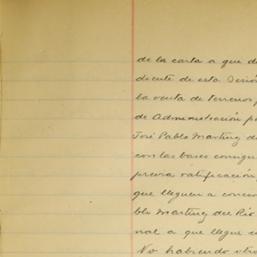 de la carta a que d
diente de esta Senó
la venta de terrenos p
de Administración p
José Pablo Martínez d
con las bases consign
previa ratificación
que lleguen a conoc
blo Martínez del Río
nal a que llegue c
No habiendo otro